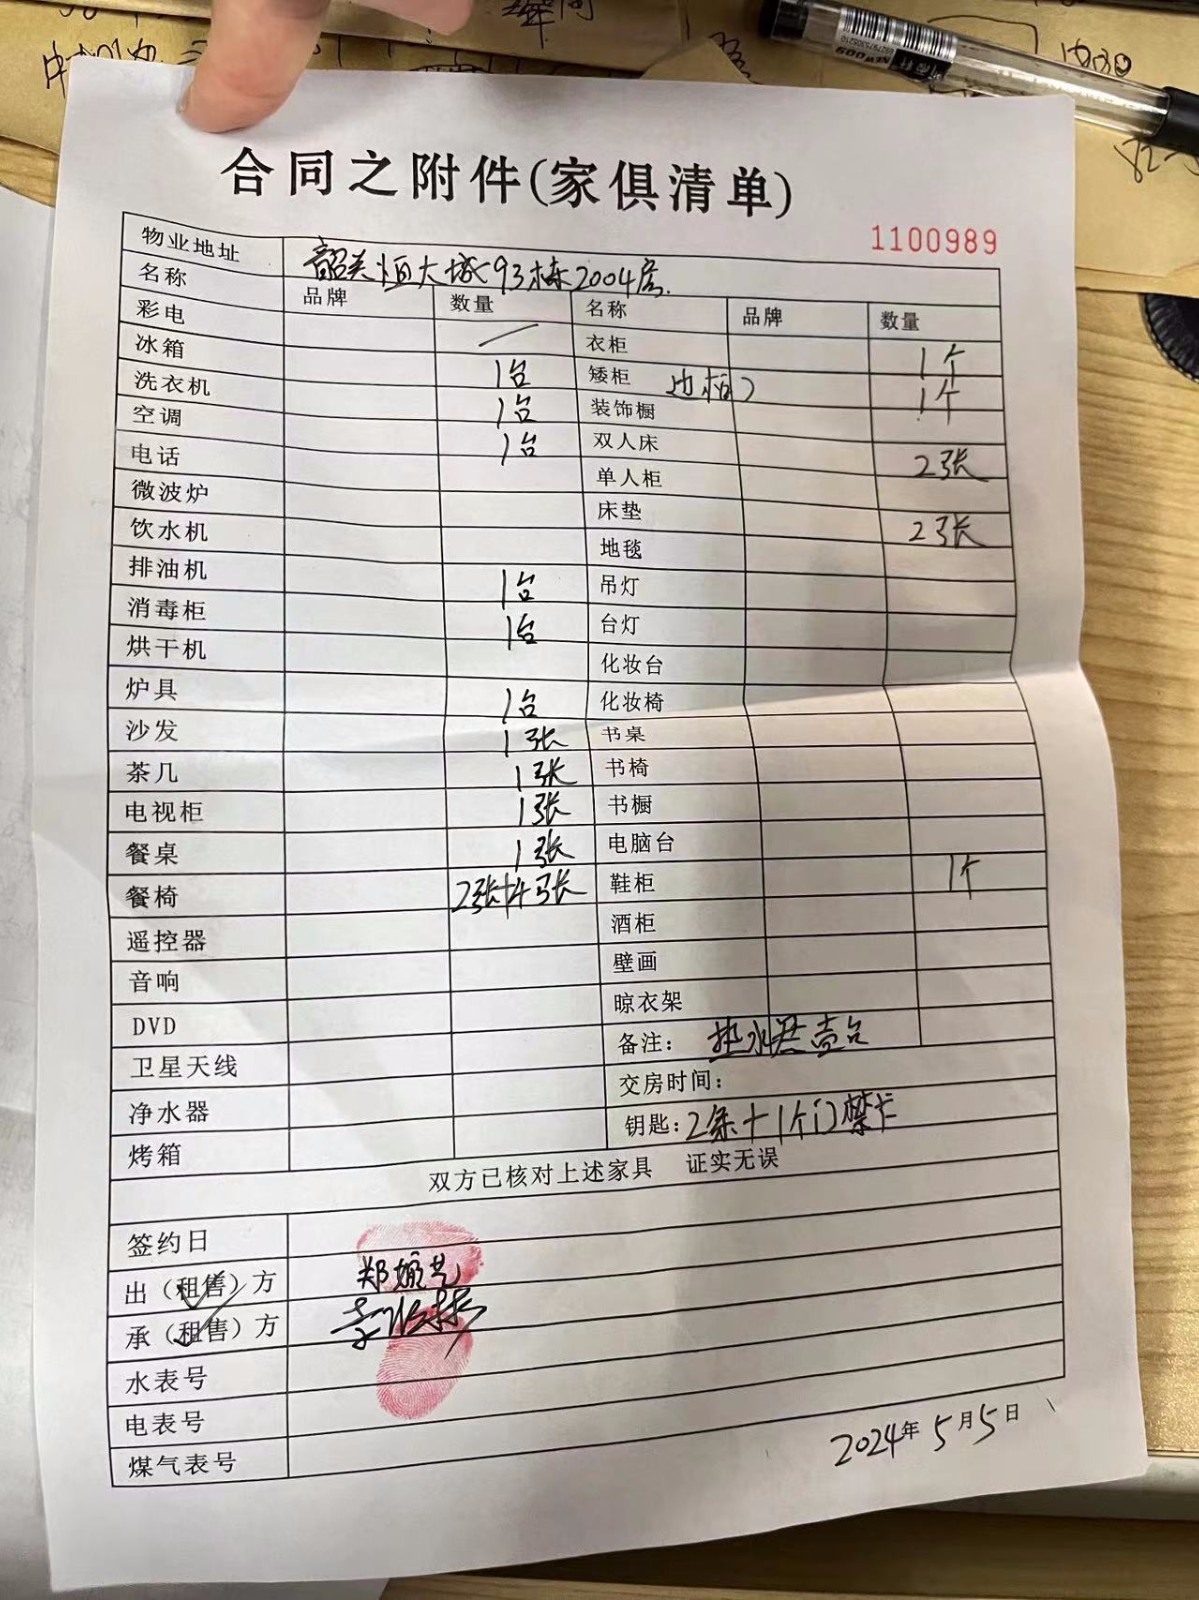 合同之附件(家俱清单)
1100989
物业地址 韶关恒大城93栋2004房.
名称 品牌 数量 名称 品牌 数量
彩电 / 衣柜 1个
冰箱 1台 矮柜 1个
洗衣机 1台 装饰橱
空调 1台 双人床 2张
电话 单人柜
微波炉 床垫 2张
饮水机 地毯
排油机 1台 吊灯
消毒柜 1台 台灯
烘干机 化妆台
炉具 1台 化妆椅
沙发 1张 书桌
茶几 1张 书椅
电视柜 1张 书橱
餐桌 1张 电脑台
餐椅 2张+4张 鞋柜 1个
遥控器 酒柜
音响 壁画
DVD 晾衣架
卫星天线 备注: 热水器壹台
净水器 交房时间:
烤箱 钥匙: 2条+1个门禁卡
双方已核对上述家具 证实无误
签约日
出(租售)方 郑婉艺
承(租售)方
水表号
电表号
煤气表号
2024年5月5日